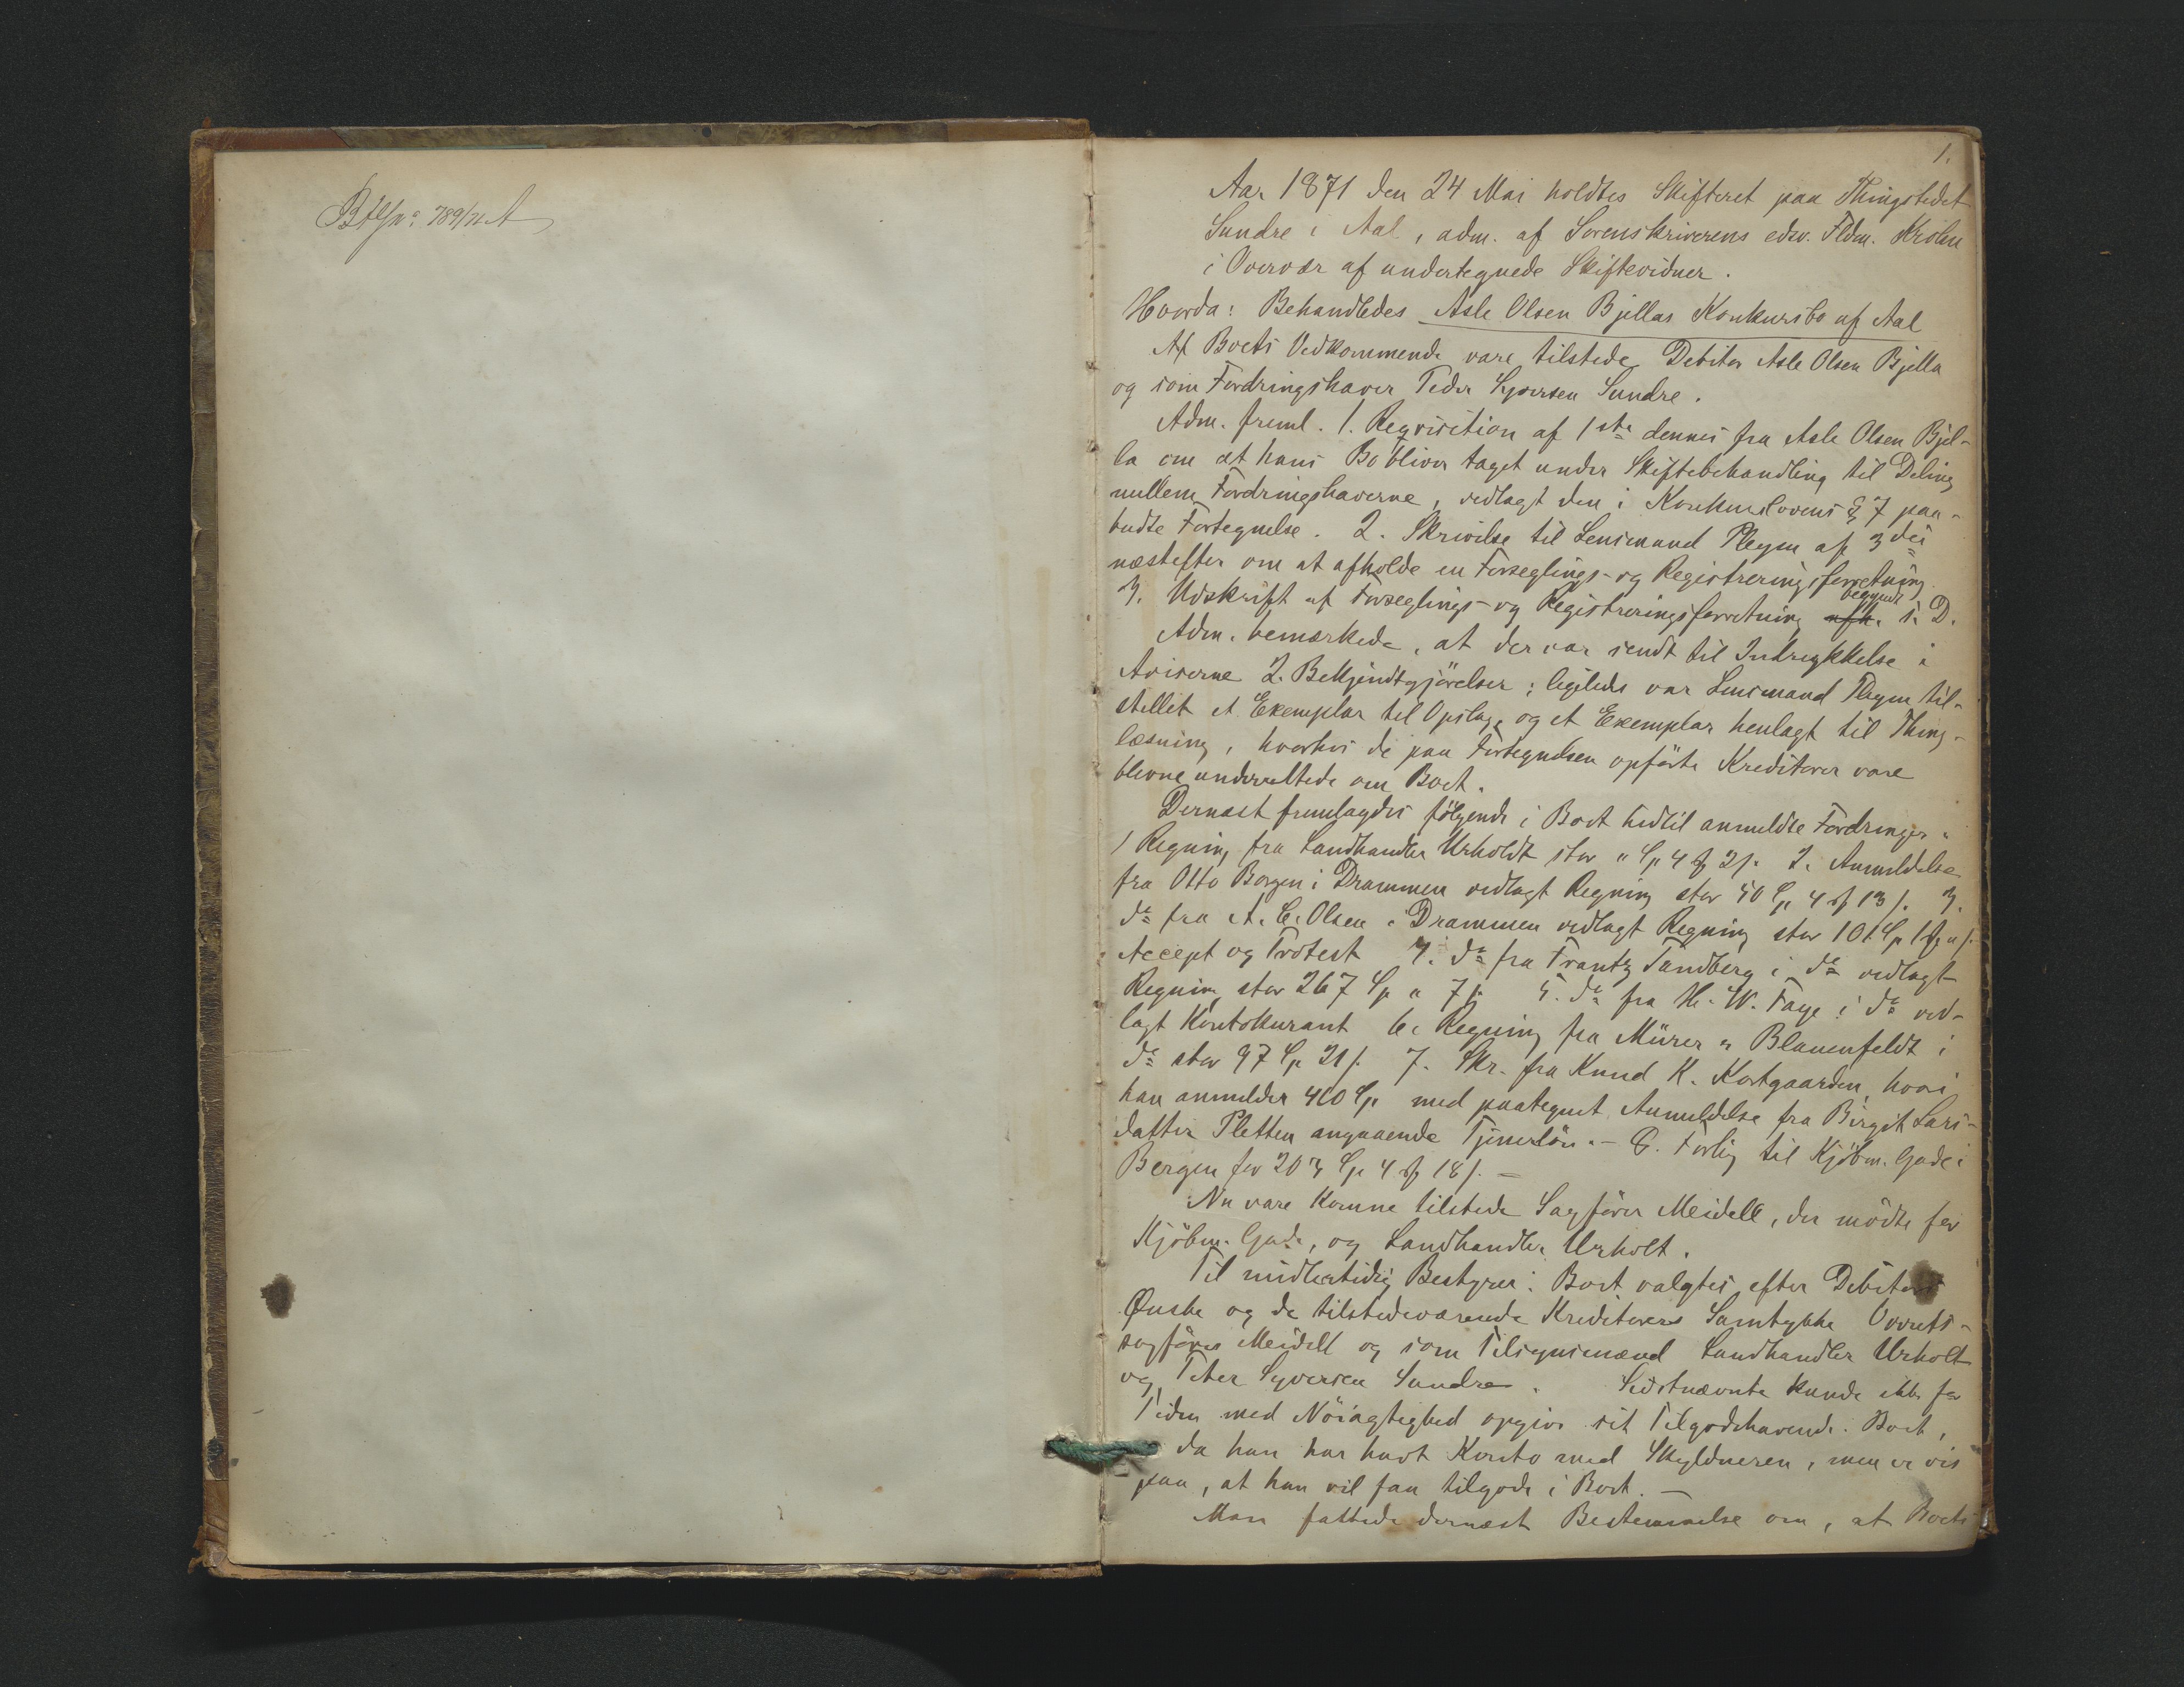 789/71 A
1.
Aar 1871 den 24 Mai holdtes Skifteret paa Thingstedet
Sundre i Aal, adm. af Sorenskriverens edsv. Fldm.
i Overvær af undertegnede Skiftevidner.
Hvorda: Behandledes Asle Olsen Bjellas Konkursbo af Aal
Af Boets Vedkommende vare tilstede Debitor Asle Olsen Bjella
og som Fordringshaver Peder Syversen Sundre.
Adm. freml. 1. Reqvisition af 1ste dennes fra Asle Olsen Bjel-
la om at hans Bo bliver taget under Skiftebehandling til Deling
mellem Fordringshaverne, vedlagt den i Konkurslovens § 7 paa-
budte Fortegnelse. 2. Skrivelse til Lensmand Plegen af 3die
næstefter om at afholde en Forseglings- og Registreringsforretning.
3. Udskrift af Forseglings- og Registreringsforretning afh. begyndt s. D.
Adm. bemærkede, at der var sendt til Indrykkelse i
Aviserne 2. Bekjendtgjörelser; ligeledes var Lensmand Plegen til-
stillet et Exemplar til Opslag, og et Exemplar henlagt til Thing-
læsning, hvorhos de paa Fortegnelsen opförte Kreditorer vare
blevne underrettede om Boet.
Dernæst fremlagdes fölgende i Boet hidtil anmeldte Fordringer:
1 Regning fra Landhandler Urholdt stor " Sp 4 ₰ 21. 2. Anmeldelse
fra Otto Borgen i Drammen vedlagt Regning stor 50 Sp 4 ₰ 13 /. 3.
do fra A. C. Olsen i Drammen vedlagt Regning stor 101 Sp 1 ₰ " /.
Accept og Protest 4. do fra Frantz Tandberg i do vedlagt
Regning stor 267 Sp " 7 /. 5. do fra H. W. Faye i do ved-
lagt Kontokurant 6. Regning fra Mürer & Blauenfeldt i
do stor 97 Sp 21 /. 7. Skr. fra Knud K. Kortgaarden, hvori
han anmelder 400 Sp med paategnet Anmeldelse fra Birgit Lars-
datter Pletten angaaende Tjenerlön. – 8. Forlig til Kjöbm. Gade i
Bergen for 203 Sp 4 ₰ 18 /. –
Nu vare komne tilstede Sagförer Meidell, der mödte for
Kjöbm. Gade, og Landhandler Urholt.
Til midlertidig Bestyrer i Boet valgtes efter Debitors
Ønske og de tilstedeværende Kreditorers Samtykke Overrets-
sagförer Meidell og som Tilsynsmænd Landhandler Urholt
og Peter Syversen Sundre. Sidstnævnte kunde ikke for
Tiden med Nöiagtighed opgive sit Tilgodehavende i Boet,
da han har havt Konto med Skyldneren, men er vis
paa, at han vil faa tilgode i Boet. –
Man fattede dernæst Bestemmelse om, at Boets